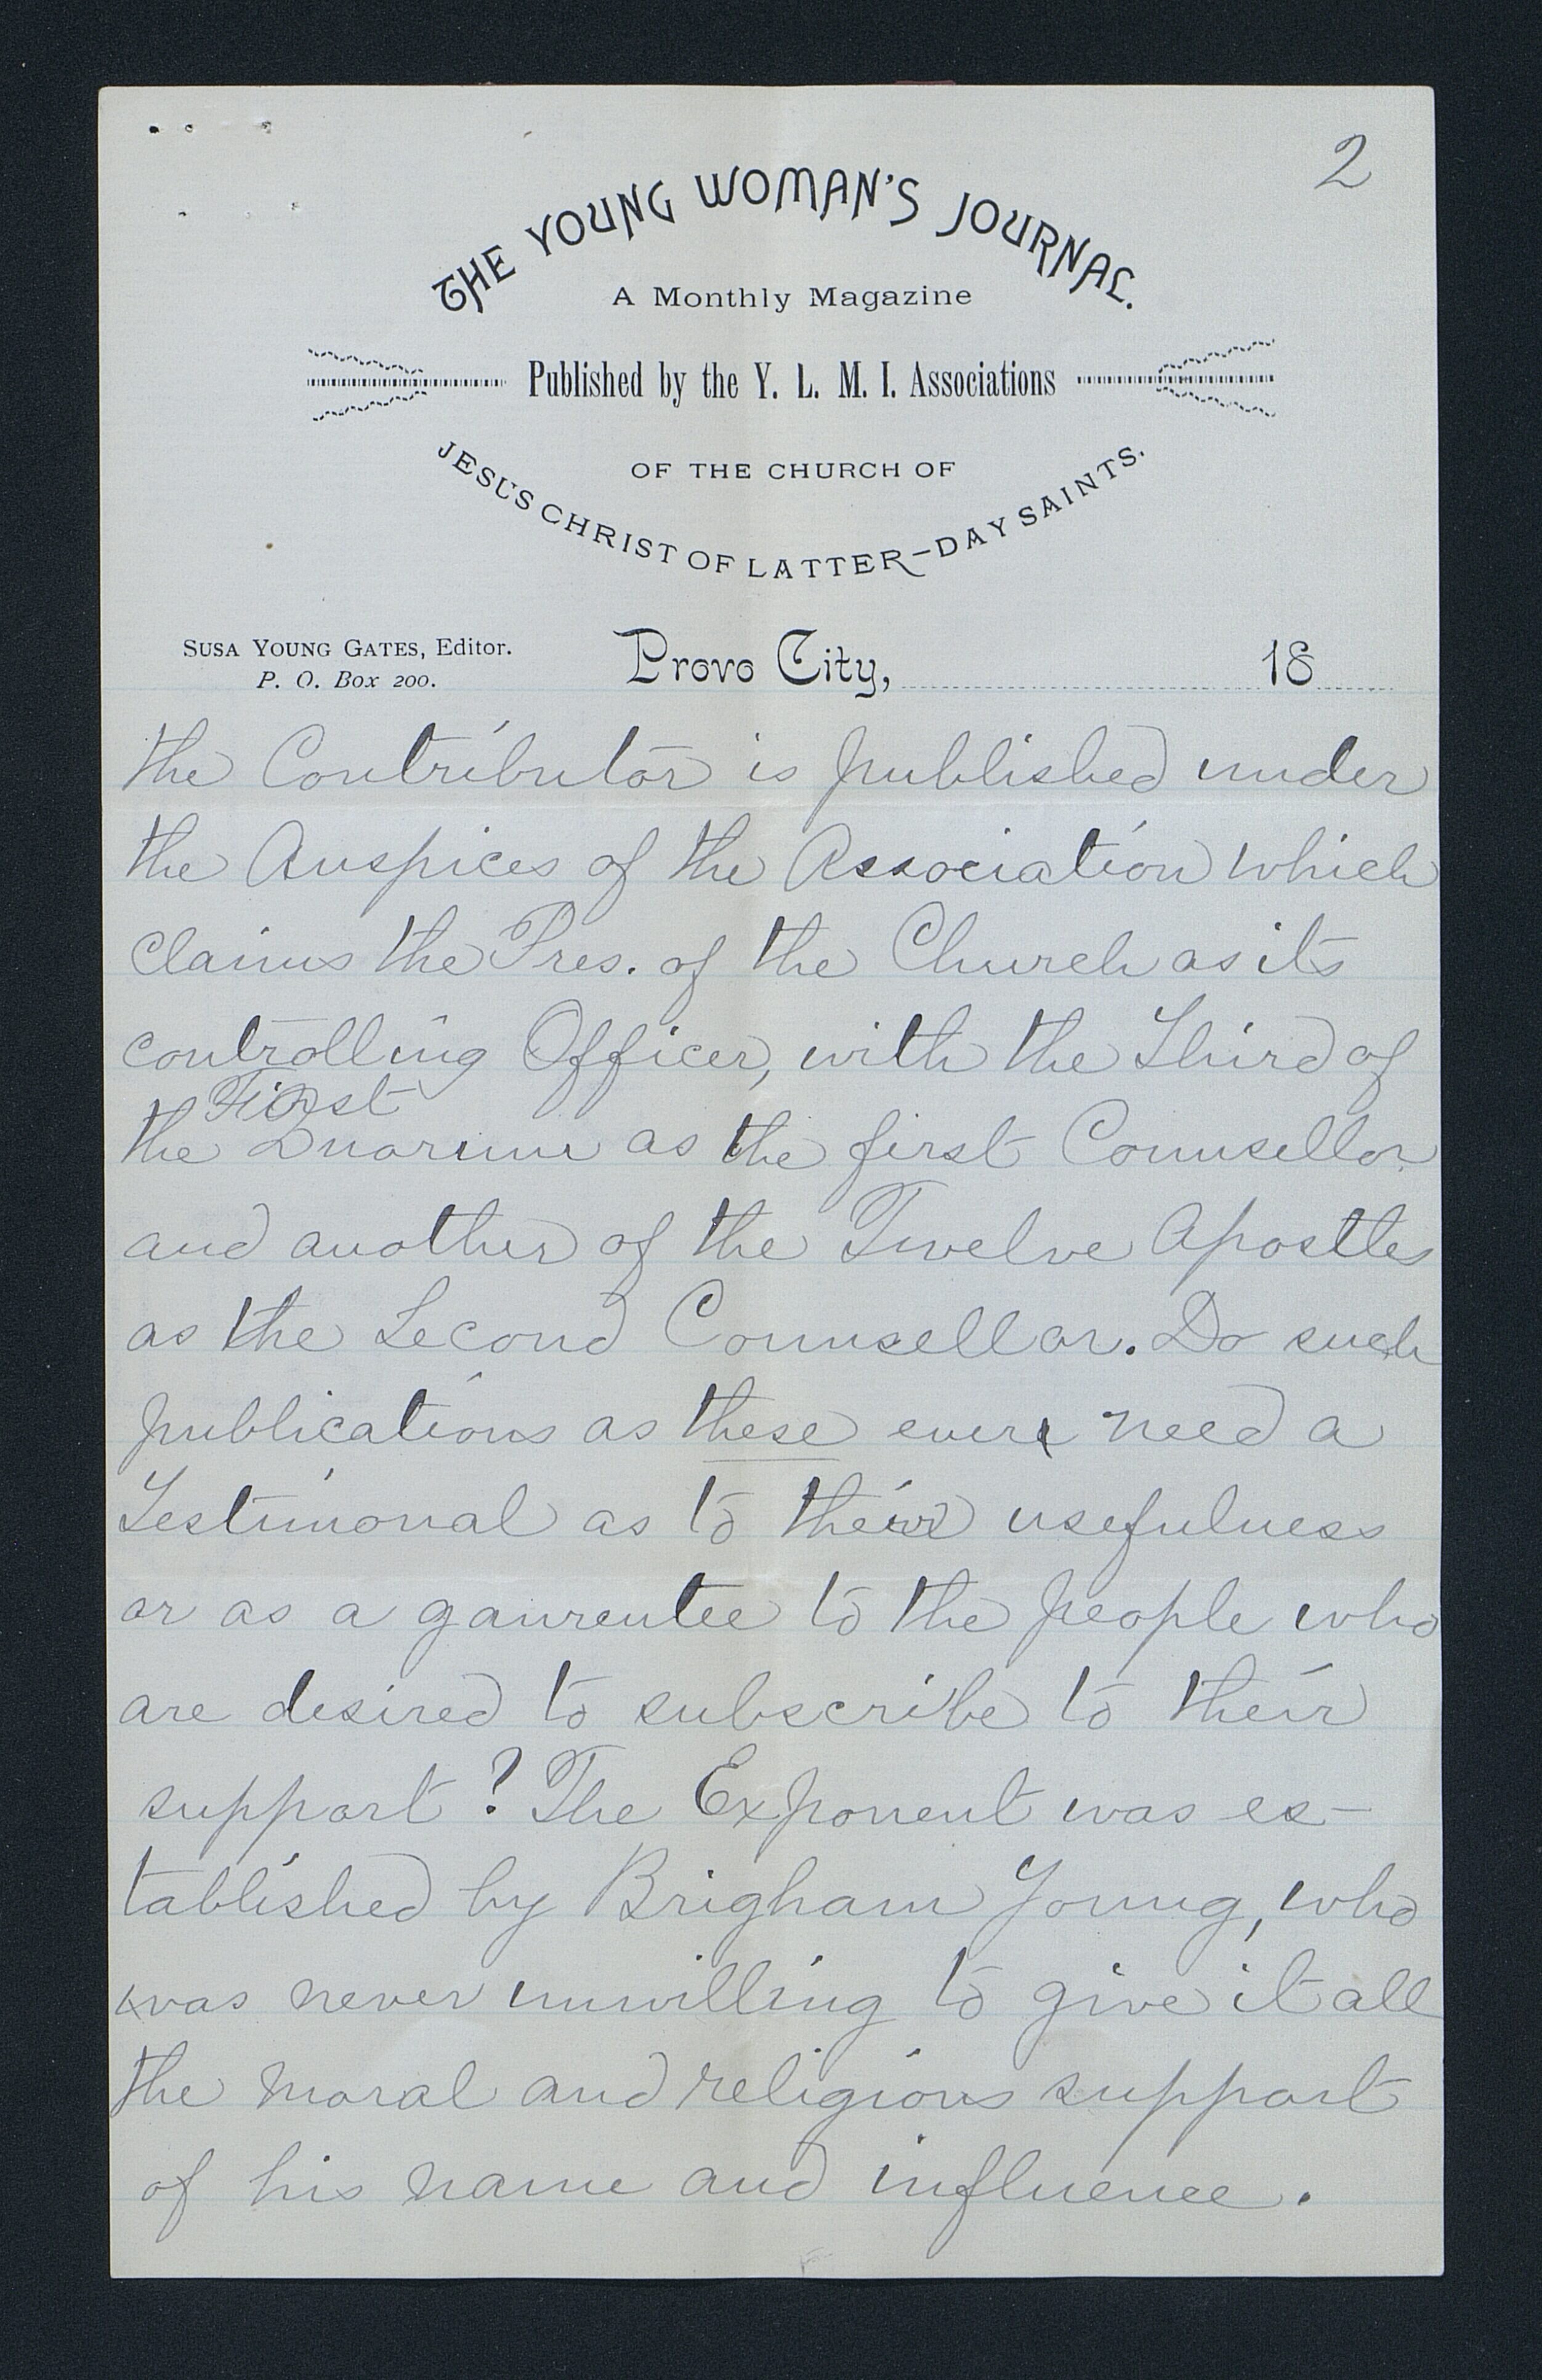 2
THE YOUNG WOMAN'S JOURNAL.
A Monthly Magazine
Published by the Y. L. M. I. Associations
OF THE CHURCH OF
JESUS CHRIST OF LATTER-DAY SAINTS.
SUSA YOUNG GATES, Editor.
P. O. Box 200.
Provo City, 18
the Contributor is published under
the Auspices of the Association which
claims the Pres. of the Church as its
controlling Officer, with the Third of
First
the Quorum as the first Counsellor
and another of the Twelve Apostles
as the Second Counsellor. Do such
publications as these ever need a
Testimonal as to their usefulness
or as a gaurentee to the people who
are desired to subscribe to their
support? The Exponent was es-
tablished by Brigham Young, who
was never unwilling to give it all
the moral and religious support
of his name and influence.